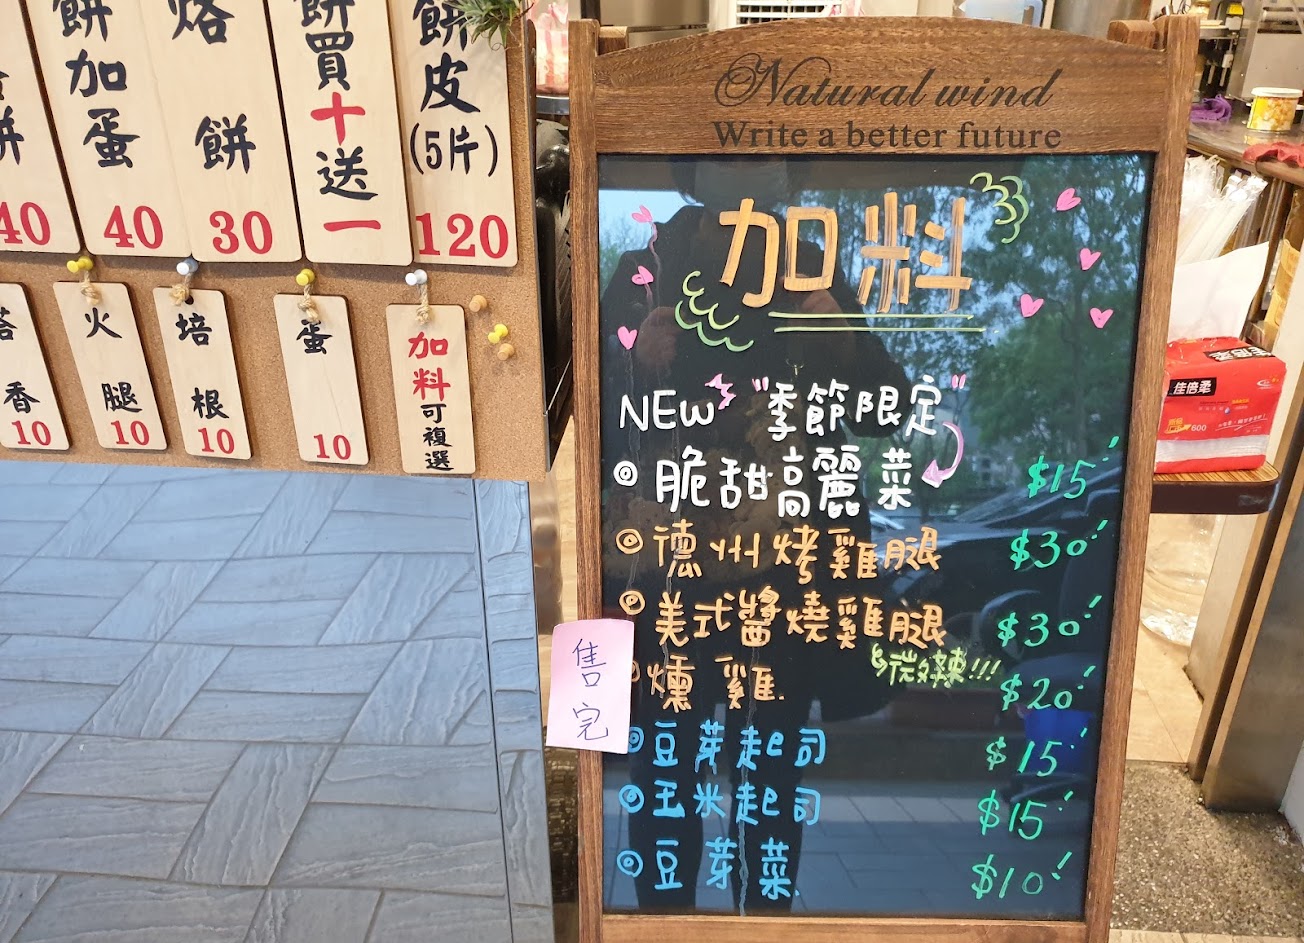 餅加蛋
40
40
烙餅
30
餅買十送一
餅皮(5片)
120
香
10
火腿
10
培根
10
蛋
10
加料可複選
Natural wind
Write a better future
加料
NEW "季節限定"
脆甜高麗菜 $15
德州烤雞腿 $30
美式醬燒雞腿 $30
微辣!!!
燻雞 $20
售完
豆芽起司 $15
玉米起司 $15
豆芽菜 $10
佳倍柔
600